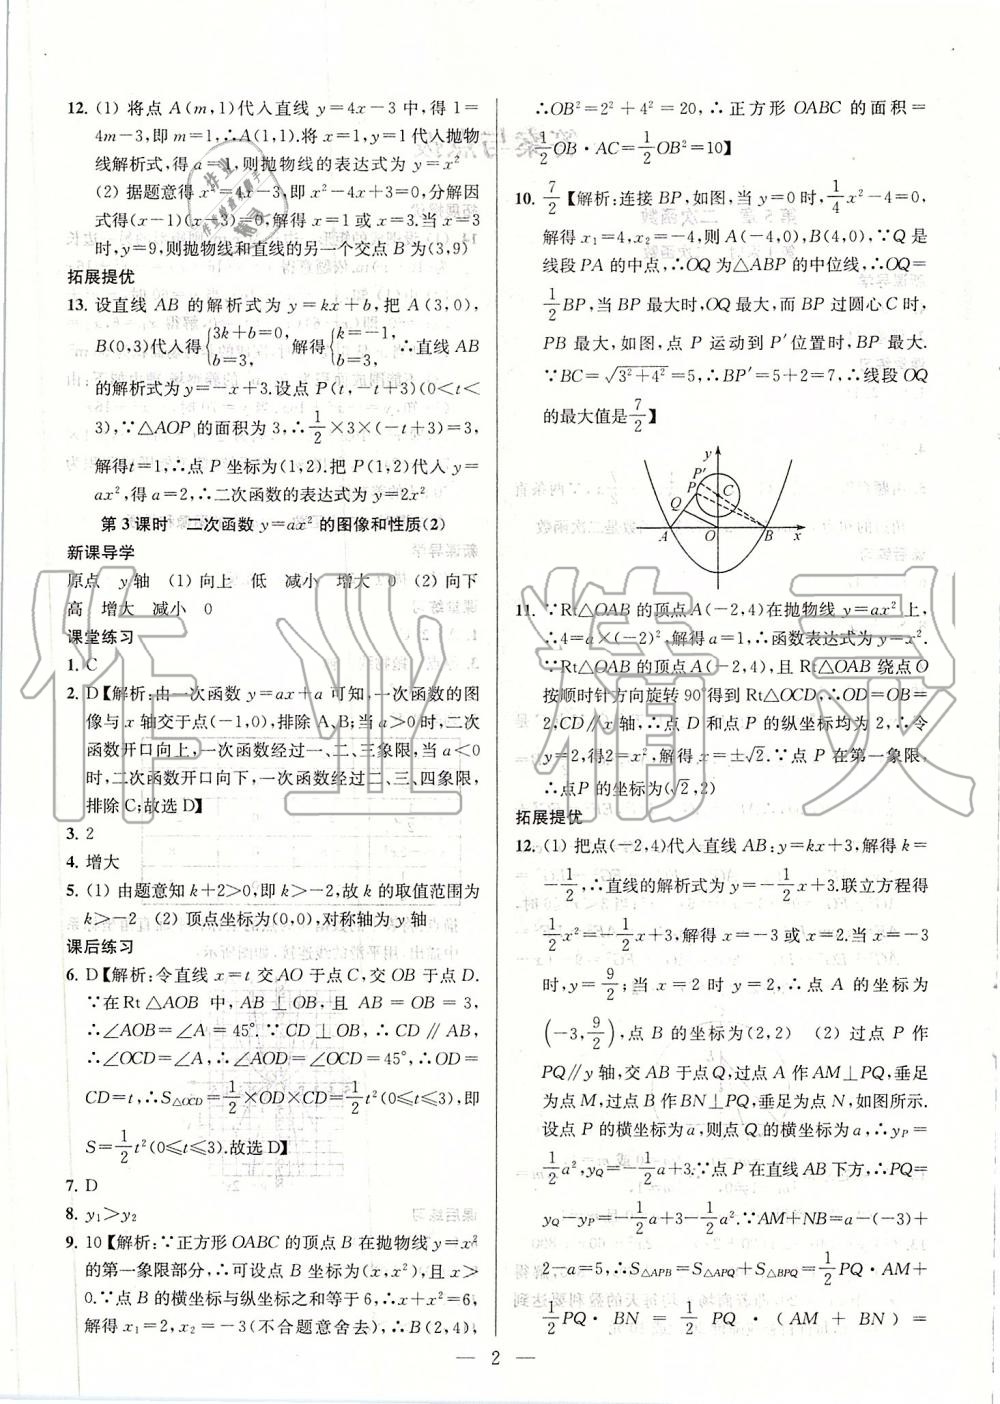 12. (1) 将点 A(m,1)代入直线 y=4x-3 中,得 1=
4m-3,即 m=1,∴A(1,1).将 x=1,y=1 代入抛物
线解析式,得 a=1,则抛物线的表达式为 y=x²
(2) 据题意得 x²=4x-3,即 x²-4x+3=0,分解因
式得(x-1)(x-3)=0,解得 x=1 或 x=3.当 x=3
时,y=9,则抛物线和直线的另一个交点 B 为(3,9)
拓展提优
13. 设直线 AB 的解析式为 y=kx+b,把 A(3,0),
B(0,3)代入得{3k+b=0, b=3, 解得{k=-1, b=3, ∴直线 AB
的解析式为 y=-x+3.设点 P(t,-t+3)(0<t<
3),∵△AOP 的面积为 3,∴1/2×3×(-t+3)=3,
解得t=1,∴点 P 坐标为(1,2).把 P(1,2)代入 y=
ax²,得 a=2,∴二次函数的表达式为 y=2x²
第 3 课时 二次函数 y=ax² 的图像和性质(2)
新课导学
原点 y 轴 (1) 向上 低 减小 增大 0 (2) 向下
高 增大 减小 0
课堂练习
1. C
2. D【解析:由一次函数 y=ax+a 可知,一次函数的图
像与 x 轴交于点(-1,0),排除 A、B;当 a>0 时,二次
函数开口向上,一次函数经过一、二、三象限,当 a<0
时,二次函数开口向下,一次函数经过二、三、四象限,
排除 C;故选 D】
3. 2
4. 增大
5. (1) 由题意知 k+2>0,即 k>-2,故 k 的取值范围为
k>-2 (2) 顶点坐标为(0,0),对称轴为 y 轴
课后练习
6. D【解析:令直线 x=t 交 AO 于点 C,交 OB 于点 D.
∵在 Rt△AOB 中,AB⊥OB,且 AB=OB=3,
∴∠AOB=∠A=45°.∵CD⊥OB,∴CD∥AB,
∴∠OCD=∠A,∴∠AOD=∠OCD=45°,∴OD=
CD=t,∴S△OCD=1/2×OD×CD=1/2t²(0≤t≤3),即
S=1/2t²(0≤t≤3).故选 D】
7. D
8. y₁>y₂
9. 10【解析:∵正方形 OABC 的顶点 B 在抛物线 y=x²
的第一象限部分,∴可设点 B 坐标为(x,x²),且 x>
0.∵点 B 的横坐标与纵坐标之和等于 6,∴x+x²=6,
解得 x₁=2,x₂=-3(不合题意舍去),∴B(2,4),
∴OB²=2²+4²=20,∴正方形 OABC 的面积=
1/2OB·AC=1/2OB²=10】
10. 7/2【解析:连接 BP,如图,当 y=0 时,1/4x²-4=0,
解得 x₁=4,x₂=-4,则 A(-4,0),B(4,0).∵Q 是
线段 PA 的中点,∴OQ 为△ABP 的中位线,∴OQ=
1/2BP,当 BP 最大时,OQ 最大,而 BP 过圆心 C 时,
PB 最大,如图,点 P 运动到 P′位置时,BP 最大.
∵BC=√(3²+4²)=5,∴BP′=5+2=7,∴线段 OQ
的最大值是7/2】
y
P′
P
C
Q
A O B x
11. ∵Rt△OAB 的顶点 A(-2,4)在抛物线 y=ax² 上,
∴4=a×(-2)²,解得 a=1,∴函数表达式为 y=x².
∵Rt△OAB 的顶点 A(-2,4),且 Rt△OAB 绕点 O
按顺时针方向旋转 90°得到 Rt△OCD,∴OD=OB=
2,CD∥x 轴,∴点 D 和点 P 的纵坐标均为 2,∴令
y=2,得2=x²,解得 x=±√2.∵点 P 在第一象限,
∴点P 的坐标为(√2,2)
拓展提优
12. (1) 把点(-2,4)代入直线 AB:y=kx+3,解得 k=
-1/2,∴直线的解析式为 y=-1/2x+3.联立方程得
1/2x²=-1/2x+3,解得 x=-3 或 x=2.当 x=-3
时,y=9/2;当 x=2 时 y=2,∴点 A 的坐标为
(-3,9/2),点 B 的坐标为(2,2) (2) 过点 P 作
PQ∥y 轴,交 AB 于点 Q,过点 A 作 AM⊥PQ,垂足
为点 M,过点 B 作 BN⊥PQ,垂足为点 N,如图所示.
设点 P 的横坐标为 a,则点 Q 的横坐标为 a,∴yP=
1/2a²,yQ=-1/2a+3.∵点 P 在直线 AB 下方,∴PQ=
yQ-yP=-1/2a+3-1/2a².∵AM+NB=a-(-3)+
2-a=5,∴S△APB=S△APQ+S△BPQ=1/2PQ·AM+
1/2PQ·BN=1/2PQ·(AM+BN)=
— 2 —
作业精灵